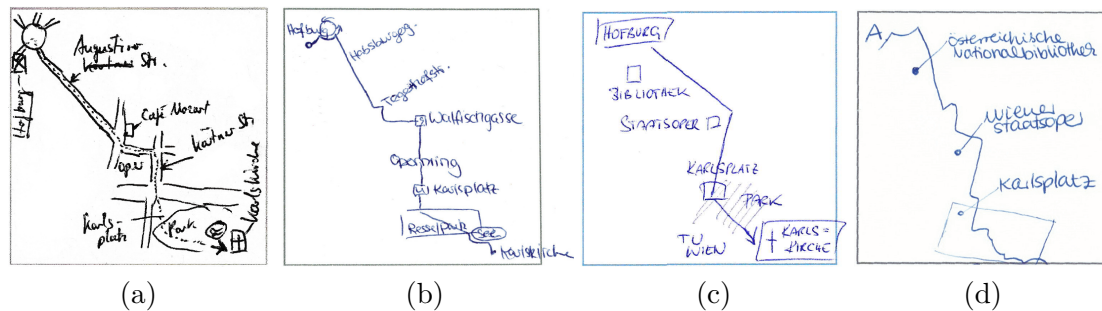 Augustiner
kärtner Str.
Hofburg
Café Mozart
kärtner Str
oper
Karls-
platz
Park
Karlskirche
(a)
Hofburg
Habsburgerg.
Tegetthofstr.
Walfischgasse
Opernring
Karlsplatz
Resselpark
See
Karlskirche
(b)
HOFBURG
BIBLIOTHEK
STAATSOPER
KARLSPLATZ
PARK
TU
WIEN
KARLS=
KIRCHE
(c)
A
österreichische
Nationalbibliothek
Wiener
Staatsoper
Karlsplatz
(d)